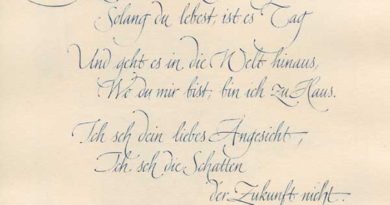 Solang du lebest, ist es Tag
Und geht es in die Welt hinaus,
Wo du mir bist, bin ich zu Haus.
Ich seh dein liebes Angesicht,
Ich seh die Schatten
der Zukunft nicht.